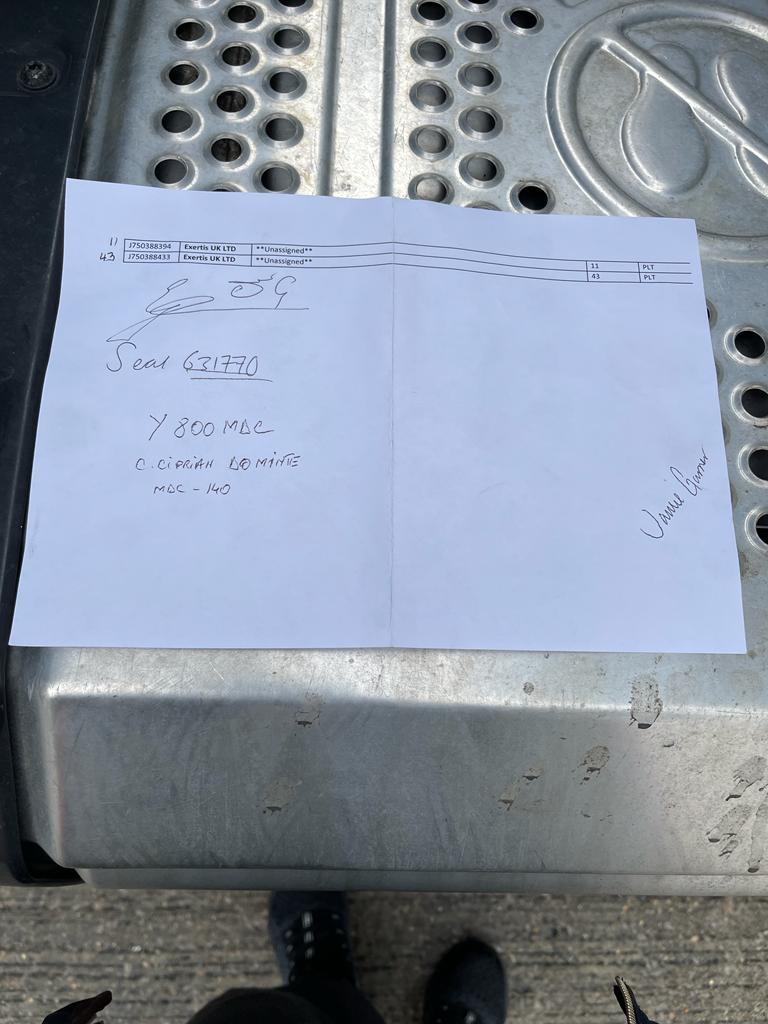 11 J750388394 Exertis UK LTD **Unassigned** 11 PLT
43 J750388433 Exertis UK LTD **Unassigned** 43 PLT
Seal 631770
Y800 MDC
C. CIPRIAN DOMINTE
MDC-140
Jamie Garner